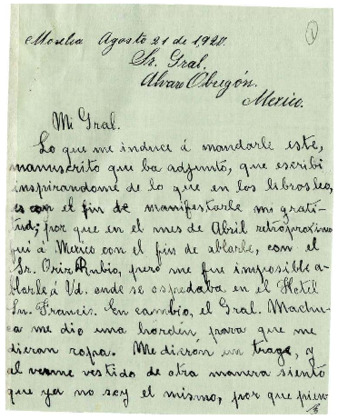 Morelia Agosto 21 de 1920.
Sr. Gral.
Alvaro Obregón.
Mexico.
Mi Gral.
Lo que me induce á mandarle este,
manuscrito que ba adjunto, que escribi
inspirandome de lo que en los libros leo,
es con el fin de manifestarle mi grati-
tud; por que en el mes de Abril retroproximo
qui á Mexico con el fin de ablarle, con el
Sr. Ortiz Rubio, pero me fue imposible a-
blarle á Vd. onde se ospedaba en el Hotel
Sn. Francis. En cambio, el Gral. Machu-
ca me dio una horden para que me
dieran ropa. Me dieron un trage, y
al verme vestido de otra manera siento
que ya no soy el mismo, por que pien-